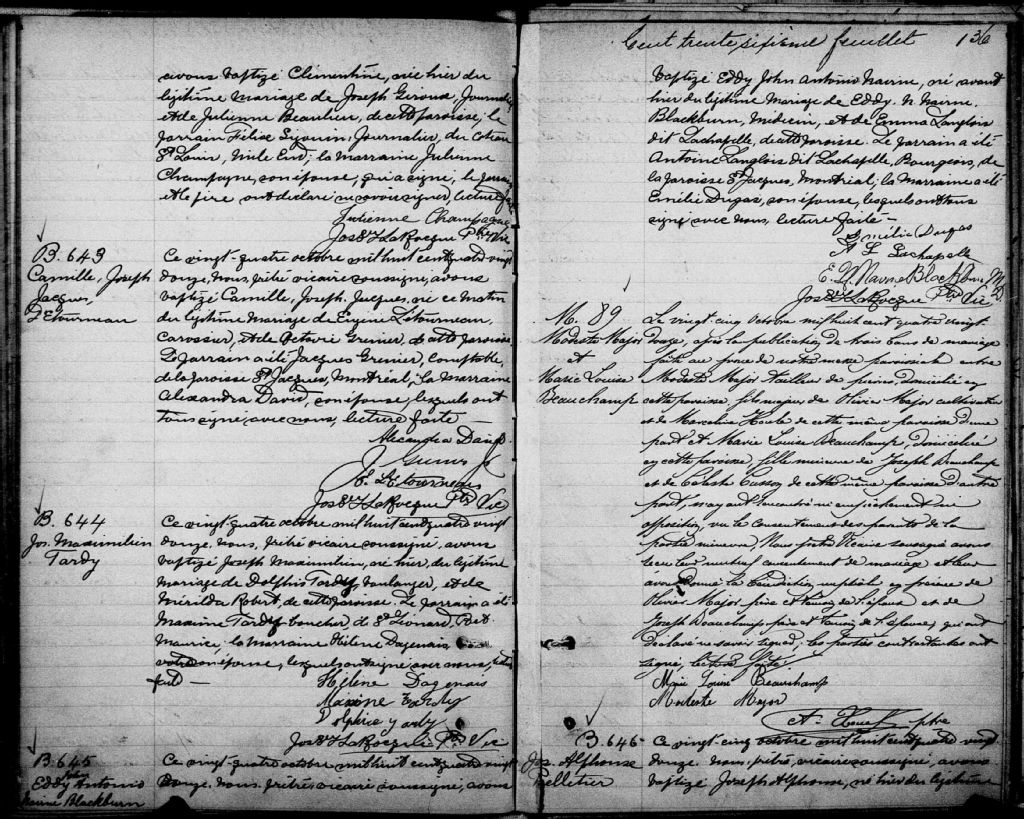 avons baptizé Clémentine, née hier du
légitime mariage de Joseph Giroux, Journalier
et de Julienne Beaulieu, de cette paroisse; le
parrain Félix Sigouin, Journalier, du Coteau
St Louis, Mile End; la marraine Julienne
Champagne, son épouse, qui a signé, le parrain
et le père ont déclaré ne savoir signer, lecture faite
Julienne Champagne
Jos. & J LaRocque Ptre Vic
B. 643
Camille, Joseph
Jacques,
Létourneau
Ce vingt-quatre octobre mil huit cent quatre vingt
douze, nous, prêtre vicaire soussigné, avons
baptizé Camille, Joseph, Jacques, né ce matin
du légitime mariage de Eugène Létourneau,
Carossier, et de Octavie Grenier, de cette paroisse
Le parrain a été Jacques Grenier, Comptable,
de la paroisse St Jacques, Montréal; la marraine
Alexandra David, son épouse, lesquels ont
tous signé avec nous, lecture faite —
Alexandra David
J. Grenier
E. Létourneau
Jos. & J LaRocque Ptre Vic
B. 644
Jos. Maximilien
Tardy
Ce vingt-quatre octobre mil huit cent quatre vingt
douze, nous, prêtre vicaire soussigné, avons
baptizé Joseph Maximilien, né hier, du légitime
mariage de Dolphis Tardy, boulanger, et de
Mérilda Robert, de cette paroisse. Le parrain a été
Maxime Tardy boucher, de St Léonard, Port
Maurice; la marraine Hélène Dagenais,
son épouse, lesquels ont signé avec nous, lecture
faite —
Hélène Dagenais
Maxime Tardy
Dolphice Tardy
Jos. & J LaRocque Ptre Vic
B. 645
Eddy John Antonio
Nairne Blackburn
Ce vingt-quatre octobre mil huit cent quatre vingt
douze, nous, prêtre, vicaire soussigné, avons
Cent trente sixième feuillet 136
baptizé Eddy John Antonio Nairne, né avant
hier du légitime mariage de Eddy N. Nairne
Blackburn, Médecin, et de Emma Langlois
dit Lachapelle, de cette paroisse. Le parrain a été
Antoine Langlois dit Lachapelle, Bourgeois, de
la paroisse St Jacques, Montréal; la marraine a été
Emélie Dugas, son épouse, lesquels ont tous
signé avec nous, lecture faite —
Emélie Dugas
A L Lachapelle
E. N. Nairne Blackburn M D
Jos. & J LaRocque Ptre Vic
M. 89
Modeste Major
et
Marie Louise
Beauchamp
Le vingt cinq Octobre mil huit cent quatre vingt
douze, après la publication de trois bans de mariage
faite au prône de notre messe paroissiale entre
Modeste Major tailleur de pierres, domicilié en
cette paroisse, fils majeur de Olivier Major cultivateur
et de Marceline Houle de cette même paroisse d'une
part et Marie Louise Beauchamp, domiciliée
en cette paroisse, fille mineure de Joseph Beauchamp
et de Céleste Cusson de cette même paroisse d'autre
part, n'ayant rencontré ni empêchement ni
opposition, vu le consentement des parents de la
partie mineure, Nous prêtre Vicaire soussigné avons
reçu leur mutuel consentement de mariage et leur
avons donné la bénédiction nuptiale en présence de
Olivier Major père et témoin de l'époux et de
Joseph Beauchamp père et témoin de l'épouse, qui ont
déclaré ne savoir signer; les parties contractantes ont
signé, lecture faite
Marie Louise Beauchamp
Modeste Major
ptre
B. 646
Jos. Alphonse
Pelletier
Ce vingt-cinq octobre mil huit cent quatre vingt
douze. nous, prêtre, vicaire soussigné, avons
baptizé Joseph Alphonse, né hier du légitime